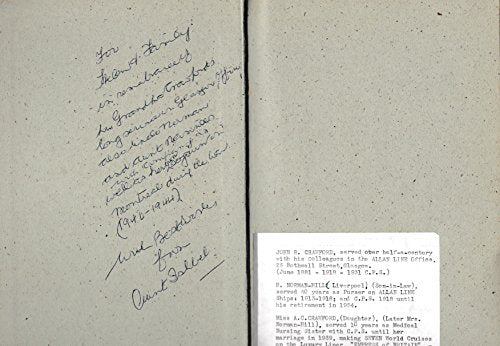 For
& Family
in remembrance of
his Grandfather
long service in Glasgow Office,
also Uncle Norman
and Aunt
with
well as her
Montreal during the War.
(1940-1944)
With Best Wishes
from
Aunt Isabel.
JOHN R. CRAWFORD, served over half-a-century
with his Colleagues in the ALLAN LINE Office,
25 Bothwell Street, Glasgow.
(June 1881 - 1918 - 1931 C.P.S.)
R. NORMAN-HILL( Liverpool) (Son-in-Law),
served 40 years as Purser on ALLAN LINE
Ships: 1913-1918; and C.P.S. 1918 until
his retirement in 1954.
Miss A.C.CRAWFORD,(Daughter), (Later Mrs.
Norman-Hill), served 10 years as Medical
Nursing Sister with C.P.S. until her
marriage in 1939, making SEVEN World Cruises
on the Luxury Liner, "EMPRESS OF BRITAIN"